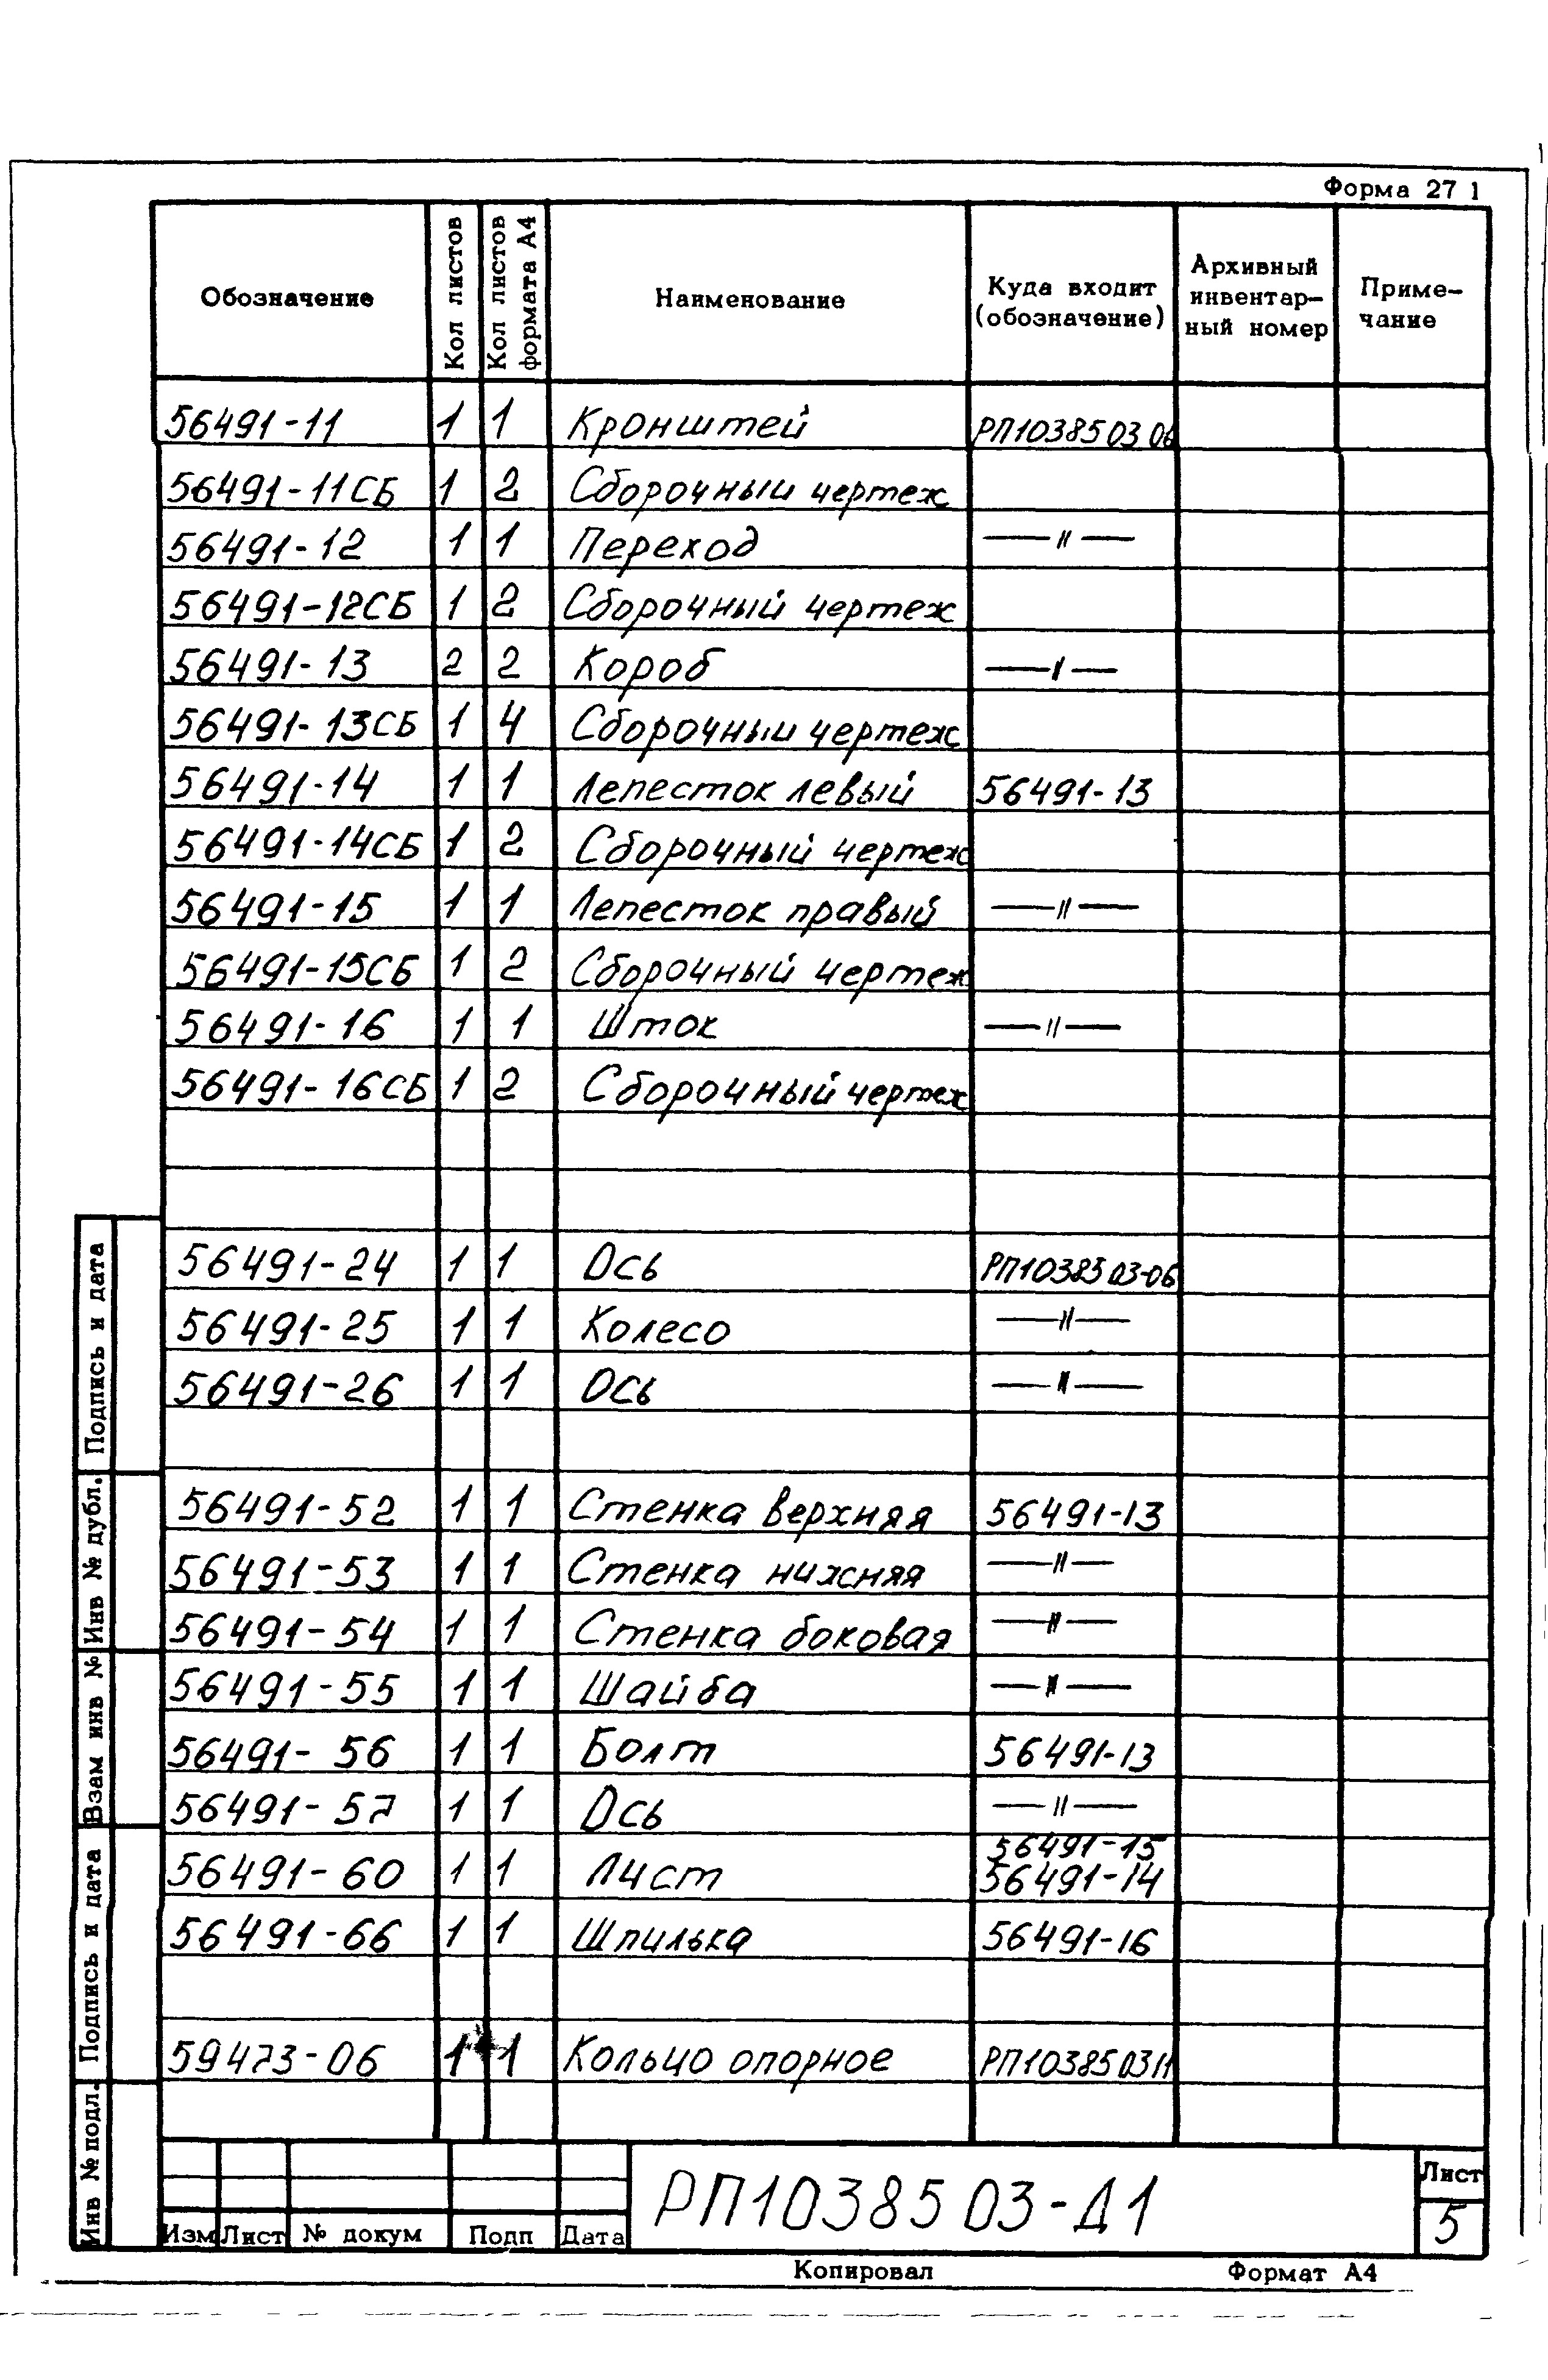 Форма 27 1
Обозначение
Кол листов
Кол листов формата А4
Наименование
Куда входит (обозначение)
Архивный инвентар-ный номер
Приме-чание
56491-11 1 1 Кронштей РП10385 03 06
56491-11СБ 1 2 Сборочный чертеж
56491-12 1 1 Переход —〃—
56491-12СБ 1 2 Сборочный чертеж
56491-13 2 2 Короб —〃—
56491-13СБ 1 4 Сборочный чертеж
56491-14 1 1 Лепесток левый 56491-13
56491-14СБ 1 2 Сборочный чертеж
56491-15 1 1 Лепесток правый —〃—
56491-15СБ 1 2 Сборочный чертеж
56491-16 1 1 Шток —〃—
56491-16СБ 1 2 Сборочный чертеж
56491-24 1 1 Ось РП10385 03-06
56491-25 1 1 Колесо —〃—
56491-26 1 1 Ось —〃—
56491-52 1 1 Стенка верхняя 56491-13
56491-53 1 1 Стенка нижняя —〃—
56491-54 1 1 Стенка боковая —〃—
56491-55 1 1 Шайба —〃—
56491-56 1 1 Болт 56491-13
56491-57 1 1 Ось —〃—
56491-15
56491-60 1 1 Лист 56491-14
56491-66 1 1 Шпилька 56491-16
59473-06 1 1 Кольцо опорное РП10385 03 11
Подпись и дата
Инв № дубл.
Взам инв №
Подпись и дата
Инв № подл.
Изм Лист № докум Подп Дата
РП10385 03-Д1
Лист
5
Копировал Формат А4